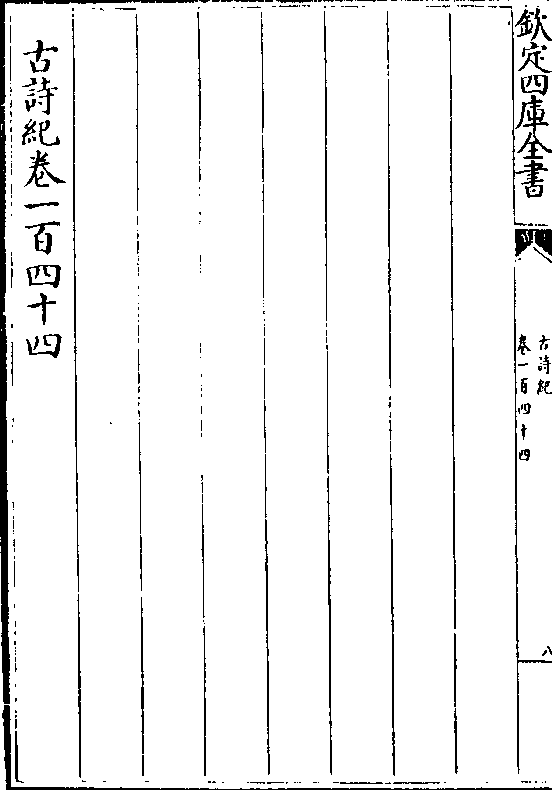 欽定四庫全書
古詩紀
卷一百四十四
八
古詩紀卷一百四十四